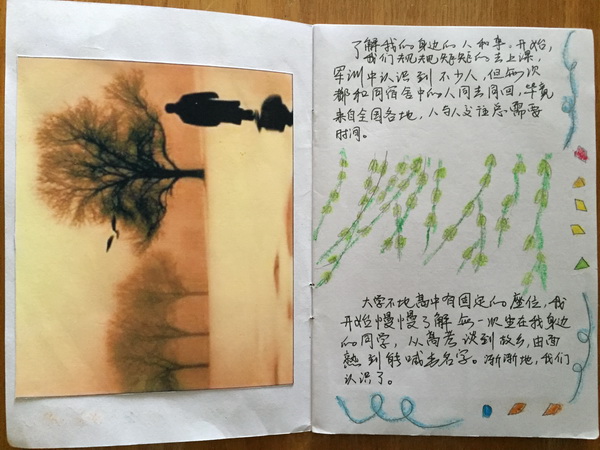 了解我的身边的人和事。开始,
我们规规矩矩的去上课,
军训中认识到不少人,但每次
都和同宿舍中的人同去同回,毕竟
来自全国各地,人与人交往总需要
时间。
大学不比高中有固定的座位,我
开始慢慢了解每一次坐在我身边
的同学,从高考谈到故乡,由面
熟到能喊出名字。渐渐地,我们
认识了。